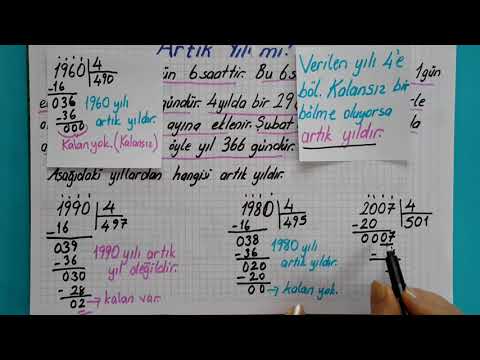 Artık Yıl mı?
1960 | 4
490
-16
036
-36
000
1960 yılı
artık yıldır.
Kalan yok. (Kalansız)
ün 6 saattir. Bu 6 s
1 gün
ündür. 4 yılda bir 29
ayına eklenir. Şubat
öyle yıl 366 gündür.
Verilen yılı 4'e
böl. Kalansız bir
bölme oluyorsa
artık yıldır.
Aşağıdaki yıllardan hangisi artık yıldır.
1990 | 4
497
-16
039
-36
030
-28
02 → kalan var.
1990 yılı artık
yıl değildir.
1980 | 4
495
-16
038
-36
020
-20
00 → kalan yok.
1980 yılı
artık yıldır.
2007 | 4
501
-20
0007